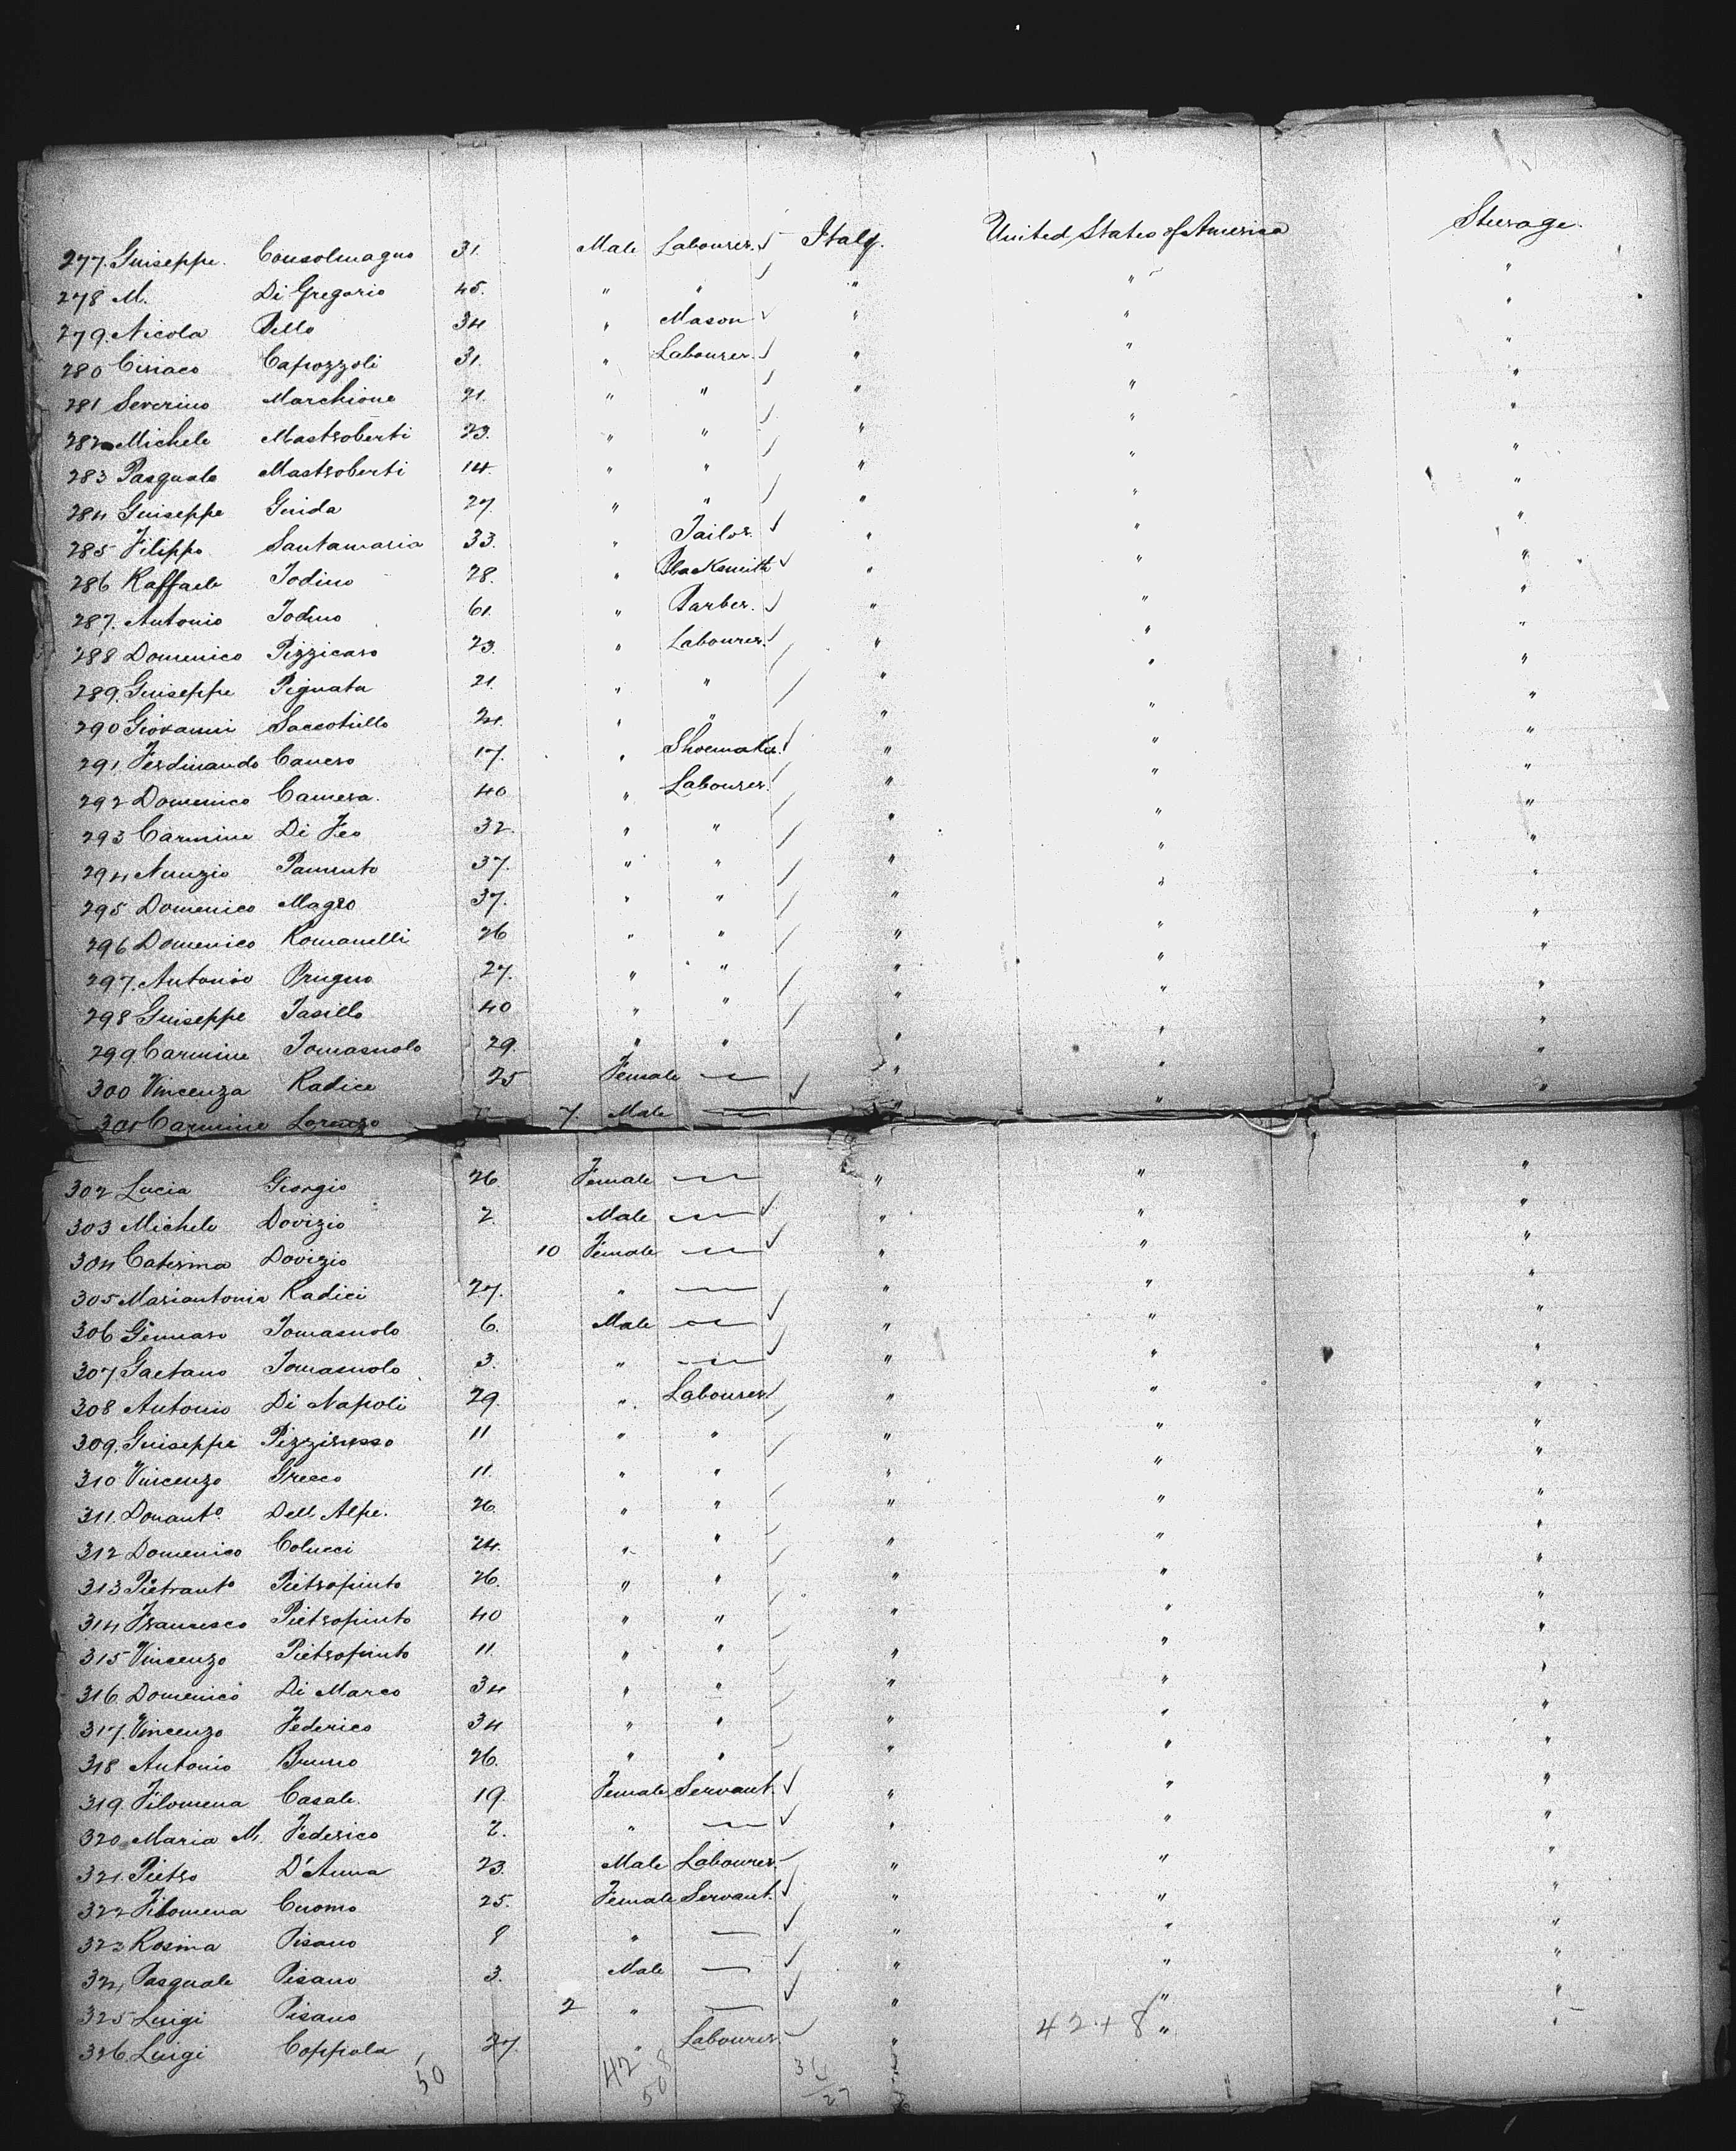 277. Guiseppe. Consolmagno 31. Male Labourer. Italy. United States of America Steerage.
278 M. Di Gregorio 45. " " " " "
279. Nicola Pello 34 " Mason " " "
280 Ciriaco Capozzoli 31. " Labourer. " " "
281 Severino Marchione 21. " " " " "
282 Michele Mastroberti 23. " " " " "
283 Pasquale Mastroberti 14. " " " " "
284 Guiseppe Guida 27. " " " " "
285 Filippo Santamaria 33. " Tailor. " " "
286 Raffaele Iodino 28. " Blacksmith " " "
287. Antonio Iodino 61. " Barber. " " "
288 Domenico Pizzicaro 23. " Labourer. " " "
289. Guiseppe Pignata 21. " " " " "
290 Giovanni Saccotiello 24. " " " " "
291 Ferdinando Canero 17. " Shoemaker. " " "
292 Domenico Camera. 40 " Labourer. " " "
293 Carmine Di Feo 32. " " " " "
294 Nunzio Pamento 37. " " " " "
295 Domenico Magro 37. " " " " "
296 Domenico Romanelli 26 " " " " "
297. Antonio Prugno 27. " " " " "
298 Guiseppe Tasillo 40 " " " " "
299. Carmine Tomasuolo 29. " " " " "
300 Vincenza Radice 25 Female — " " "
301 Carmine Lorenzo 7. Male — " " "
302 Lucia Giorgio 26. Female — " " "
303 Michele Dovizio 2. Male — " " "
304 Caterina Dovizio 10 Female — " " "
305 Mariantonia Radici 27. " — " " "
306 Gennaro Tomasuolo 6. Male — " " "
307. Gaetano Tomasuolo 3. " — " " "
308 Antonio Di Napoli 29. " Labourer. " " "
309. Guiseppe Pizzirusso 11 " " " " "
310 Vincenzo Greco 11. " " " " "
311. Donanto. Dell Alpe. 26. " " " " "
312 Domenico Colucci 24. " " " " "
313 Pietranto Pietropinto 26. " " " " "
314 Francesco Pietropinto 40 " " " " "
315 Vincenzo Pietropinto 11. " " " " "
316 Domenico Di Marco 34 " " " " "
317. Vincenzo Federico 34 " " " " "
318 Antonio Bruno 26. " " " " "
319. Filomena Casale. 19. Female Servant. " " "
320 Maria M. Federico 2. " — " " "
321. Pietro D'Anna 23. Male Labourer. " " "
322 Filomena Cuomo 25. Female Servant. " " "
323 Rosina Pisano 9 " — " " "
324 Pasquale Pisano 3. Male — " " "
325 Luigi Pisano 2 " — " " "
326. Luigi Coppola 27. " Labourer " 42 + 8 " "
50 42 8
50 27